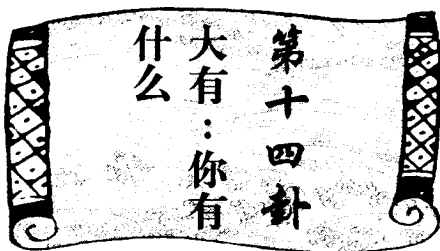 第十四卦
大有：你有
什么